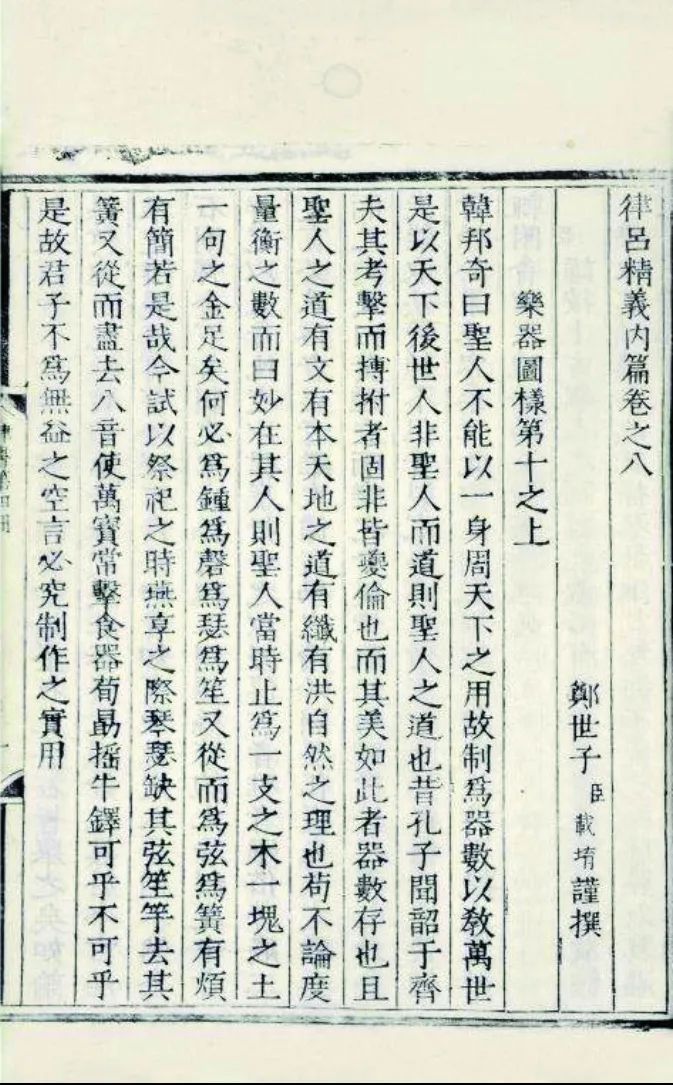 律呂精義內篇卷之八
鄭世子臣載堉謹撰
樂器圖樣第十之上
韓邦奇曰聖人不能以一身周天下之用故制爲器數以敎萬世
是以天下後世人非聖人而道則聖人之道也昔孔子聞韶于齊
夫其考擊而搏拊者固非皆夔倫也而其美如此者器數存也且
聖人之道有文有本天地之道有纖有洪自然之理也苟不論度
量衡之數而曰妙在其人則聖人當時止爲一支之木一塊之土
一句之金足矣何必爲鍾爲磬爲瑟爲笙又從而爲弦爲簧有煩
有簡若是哉今試以祭祀之時燕享之際琴瑟缺其弦笙竽去其
簧又從而盡去八音使萬寶常擊食器荀勗摇牛鐸可乎不可乎
是故君子不爲無益之空言必究制作之實用